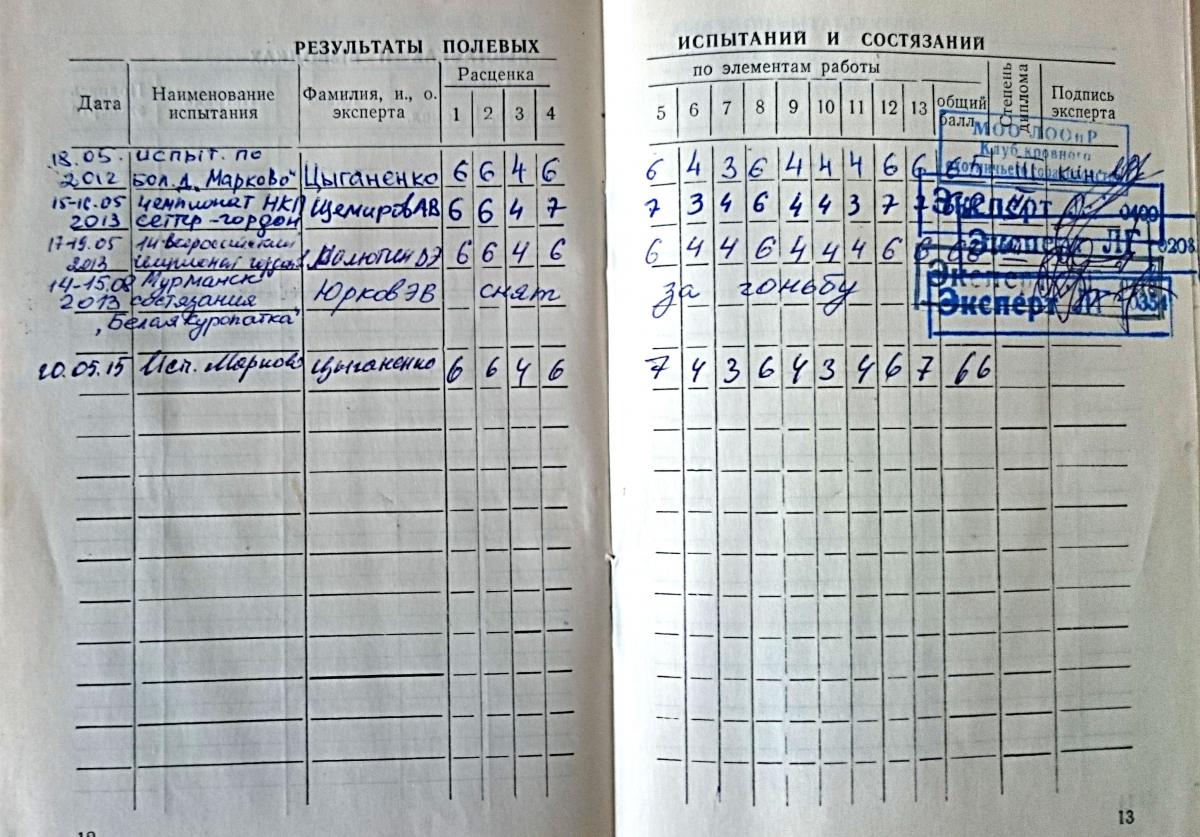 РЕЗУЛЬТАТЫ ПОЛЕВЫХ ИСПЫТАНИЙ И СОСТЯЗАНИЙ
Дата Наименование испытания Фамилия, и., о. эксперта Расценка по элементам работы общий балл Степень диплома Подпись эксперта
1 2 3 4 5 6 7 8 9 10 11 12 13
18.05. испыт. по
2012 бол.д. „Марково" Цыганенко 6 6 4 6 6 4 3 6 4 4 4 6 6 65
15-16.05 Чемпионат НКП
2013 сеттер-гордон Щемиров АВ 6 6 4 7 7 3 4 6 4 4 3 7 7
17-19.05 14 Всероссийский
2013 6 6 4 6 6 4 4 6 4 4 4 6 6
14-15.08 Мурманск
2013 состязания Юрков ЭВ снят за гоньбу
„Белая куропатка"
20.05.15 Исп. Марково Цыганенко 6 6 4 6 7 4 3 6 4 3 4 6 7 66
МОО ЛООиР
Клуб кровного
Эксперт 0400
Эксперт ЛГ 0208
Эксперт
Эксперт ЛГ 0354
12
13